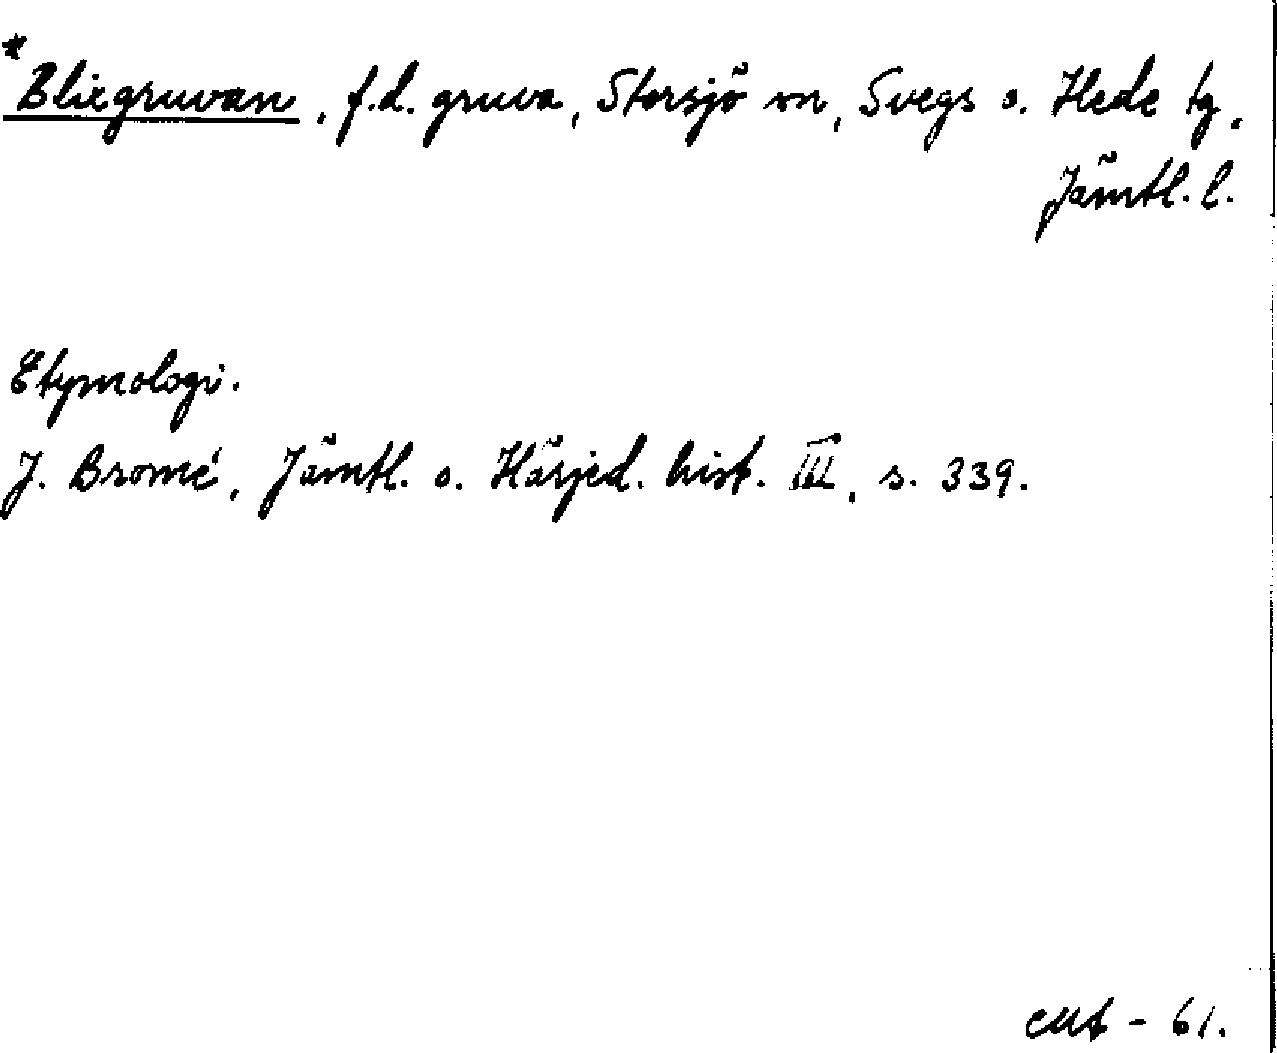 *Bliegruvan, f.d. gruva, Storsjö sn, Svegs o. Hede tg,
Jämtl. l.
Etymologi.
J. Bromé, Jämtl. o. Härjed. hist. III, s. 339.
- 61.